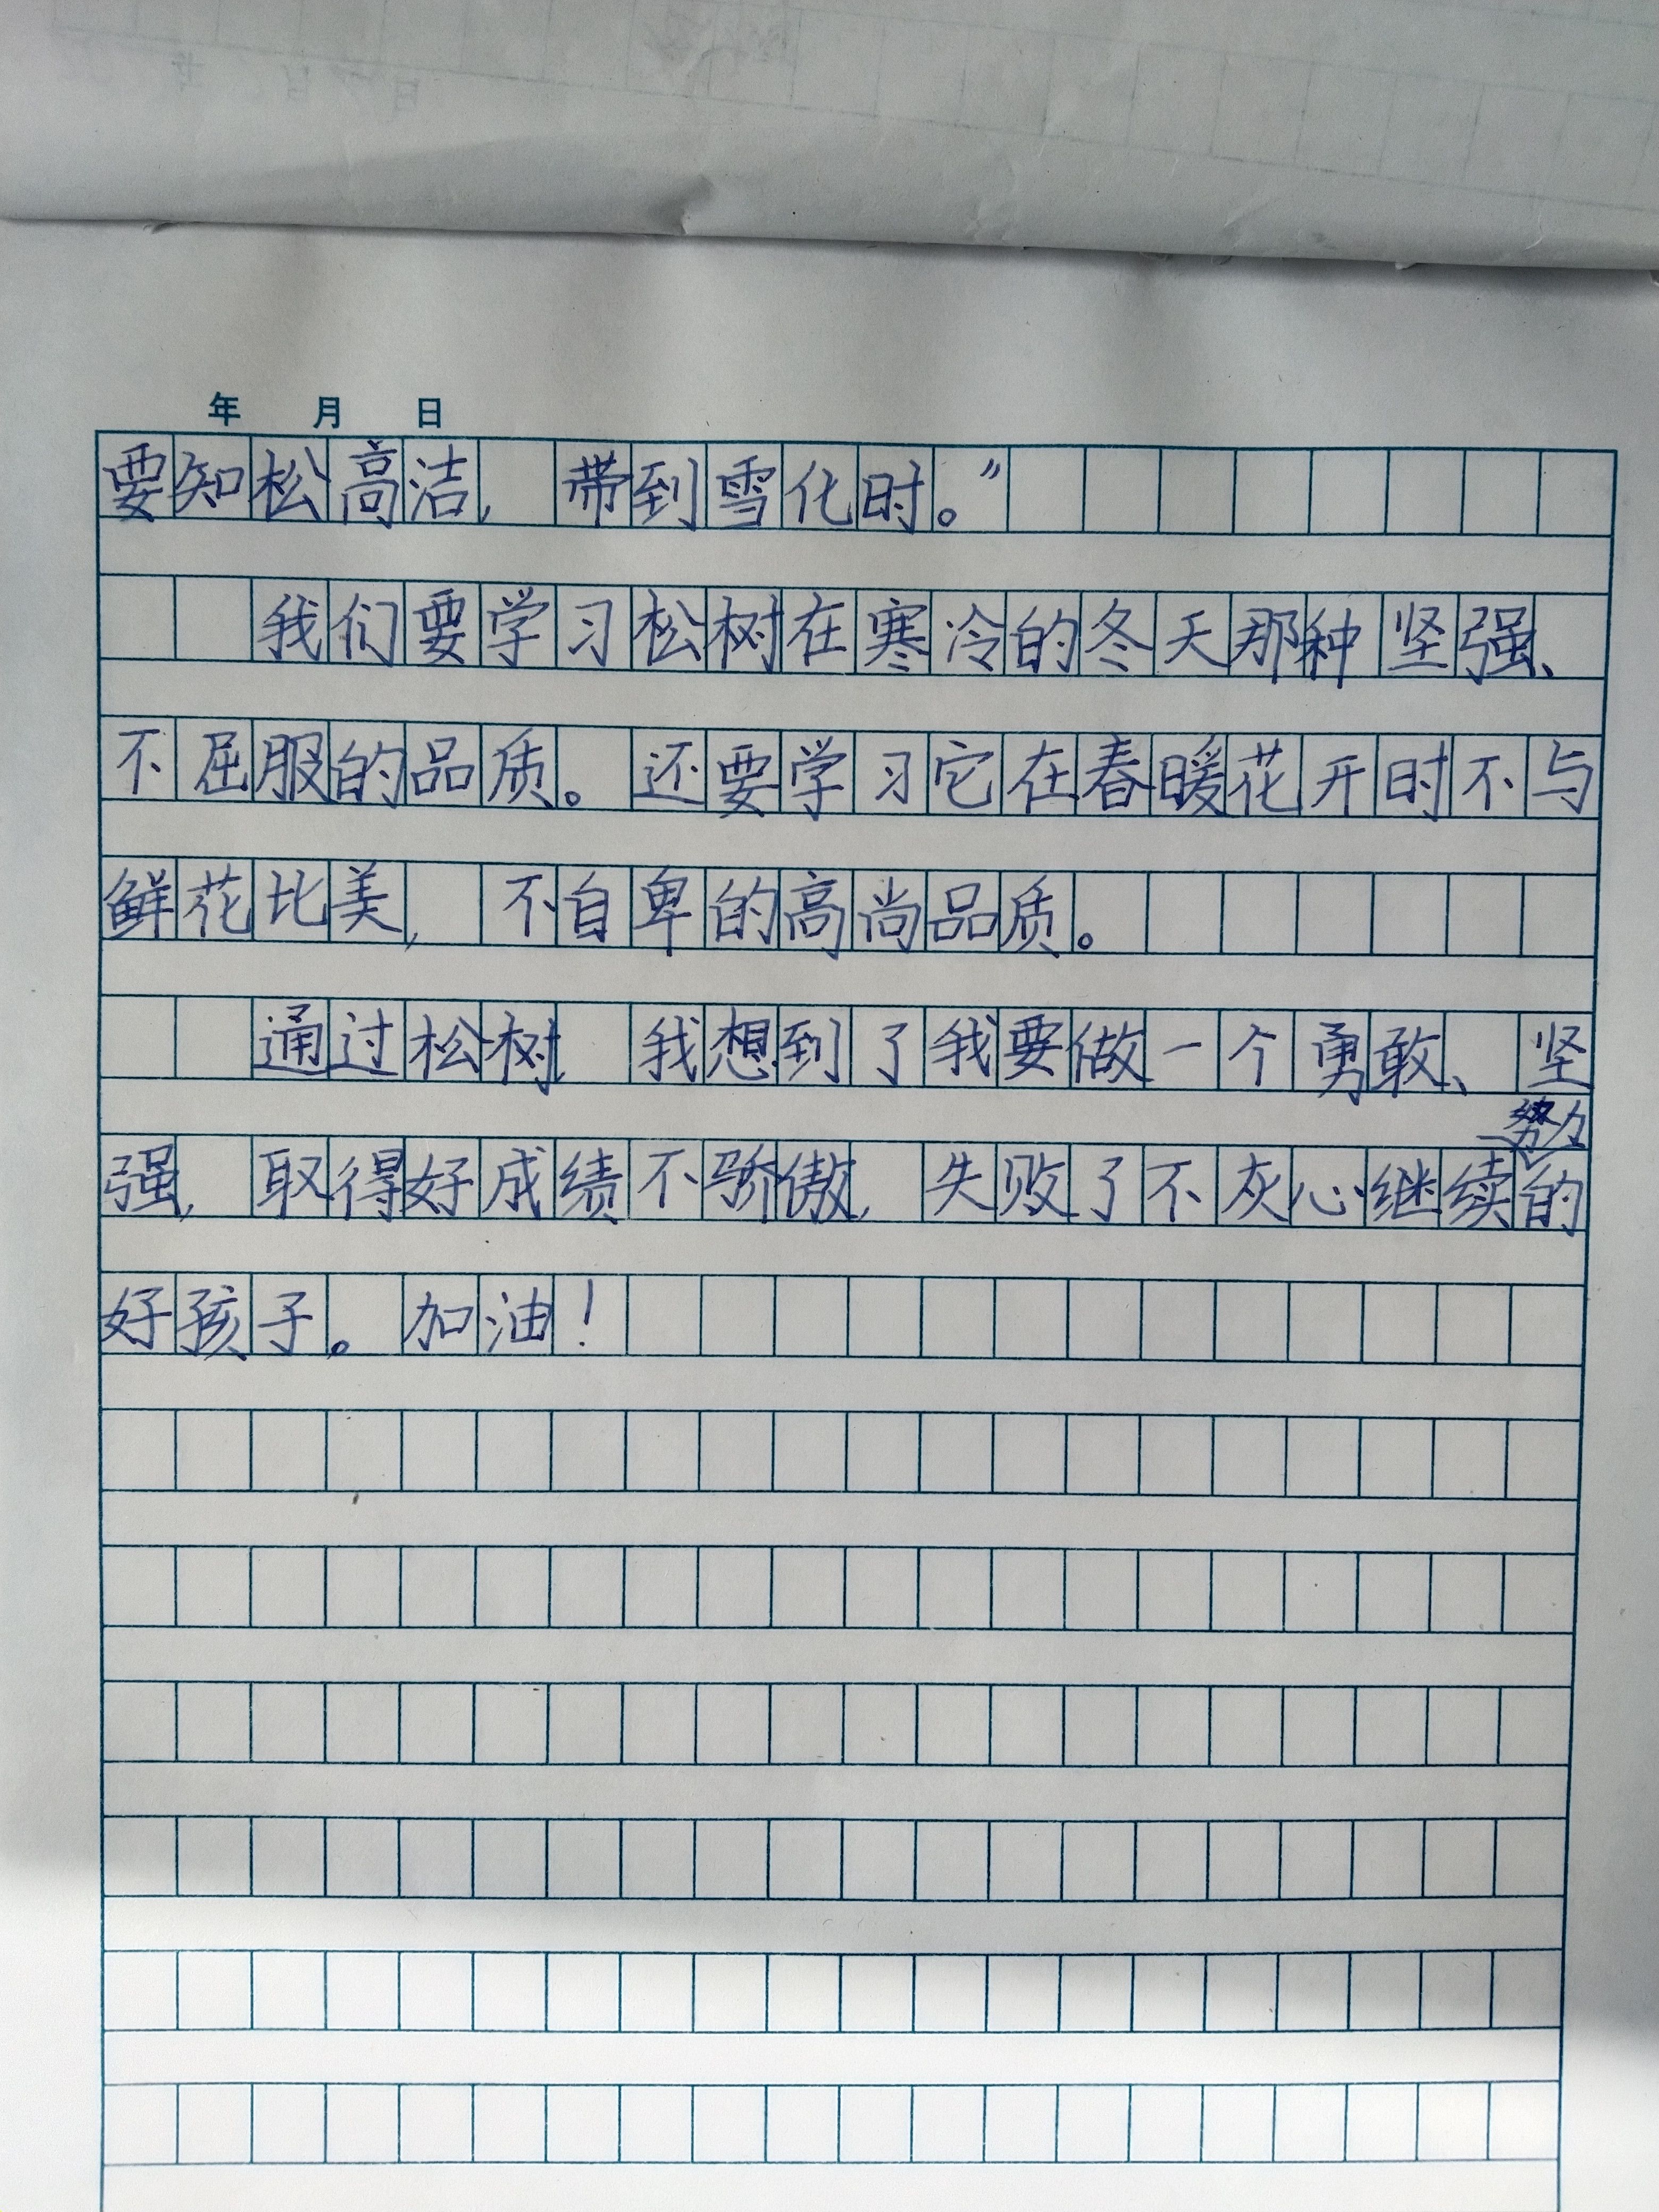 年 月 日
要知松高洁，带到雪化时。”
我们要学习松树在寒冷的冬天那种坚强、
不屈服的品质。还要学习它在春暖花开时不与
鲜花比美，不自卑的高尚品质。
通过松树，我想到了我要做一个勇敢、坚
努力
强，取得好成绩不骄傲，失败了不灰心继续的
好孩子。加油！